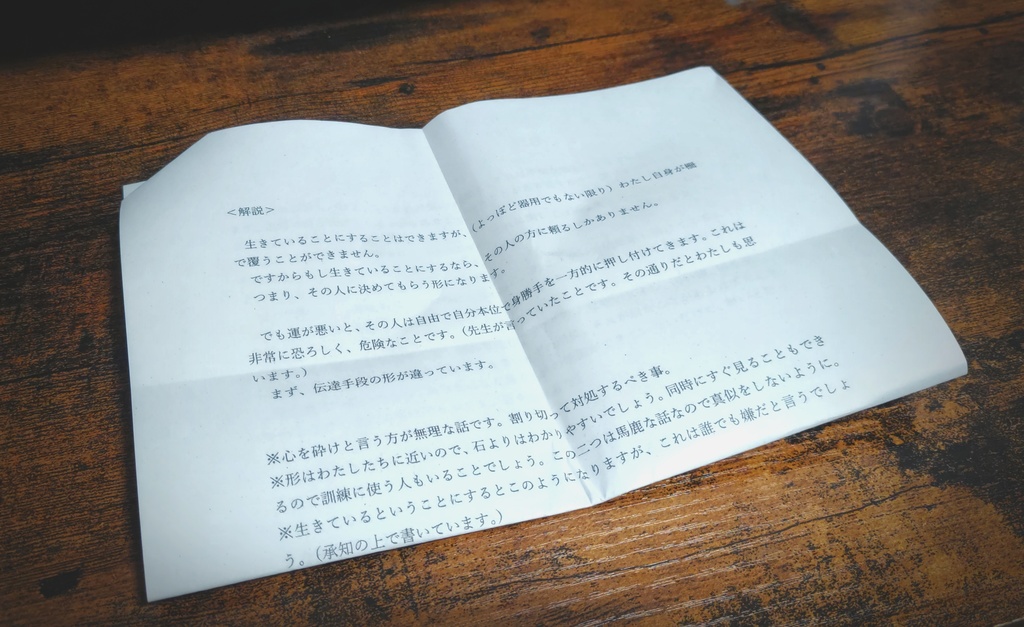 <解説>
生きていることにすることはできますが、(よっぽど器用でもない限り)わたし自身が棚
で覆うことができません。
ですからもし生きていることにするなら、その人の方に頼るしかありません。
つまり、その人に決めてもらう形になります。
でも運が悪いと、その人は自由で自分本位で身勝手を一方的に押し付けてきます。これは
非常に恐ろしく、危険なことです。(先生が言っていたことです。その通りだとわたしも思
います。)
まず、伝達手段の形が違っています。
※心を砕けと言う方が無理な話です。割り切って対処するべき事。
※形はわたしたちに近いので、石よりはわかりやすいでしょう。同時にすぐ見ることもでき
るので訓練に使う人もいることでしょう。この二つは馬鹿な話なので真似をしないように。
※生きているということにするとこのようになりますが、これは誰でも嫌だと言うでしょ
う。(承知の上で書いています。)